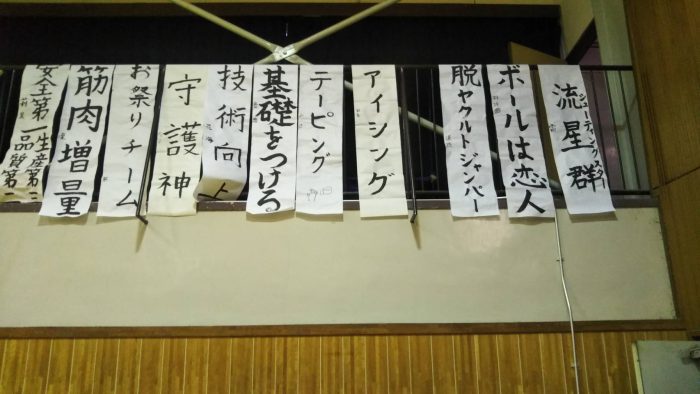 流星群
シューティングスター
ボールは恋人
脱ヤクルトジャンパー
アイシング
テーピング
基礎をつける。
技術向上
守護神
お祭りチーム
筋肉増量
安全第一品質第一
生産第二